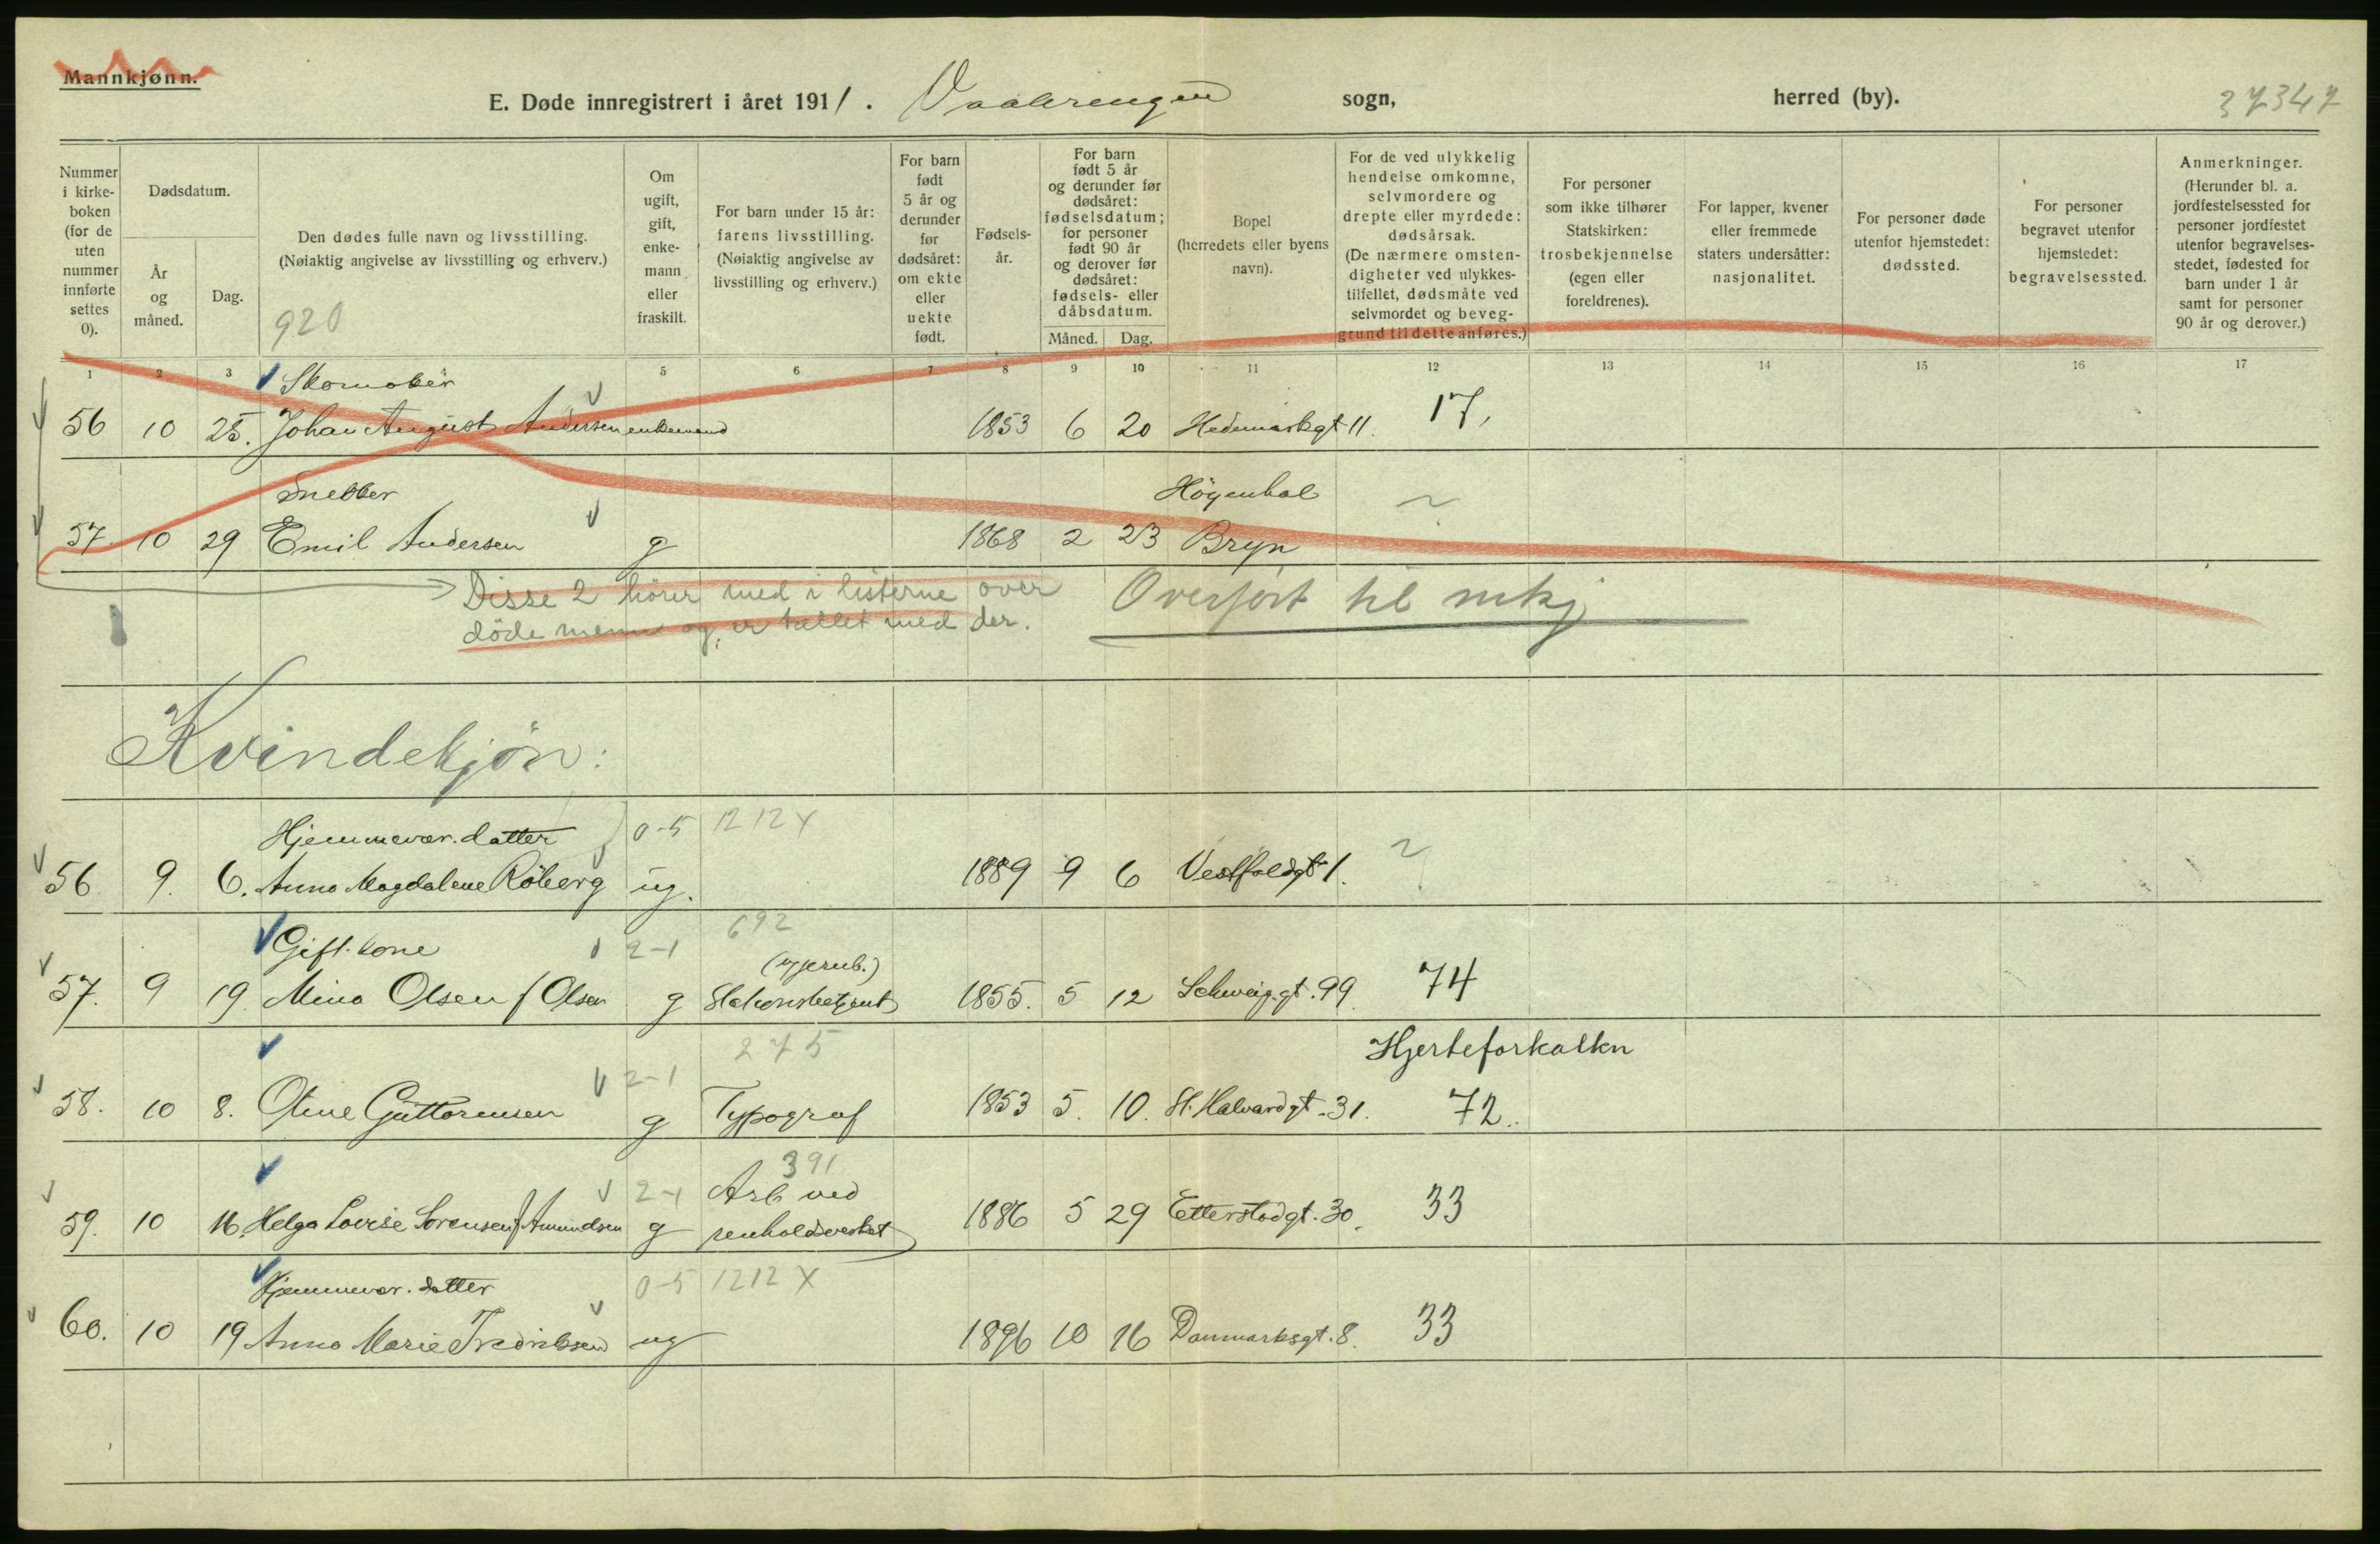 Mannkjønn.
E. Døde innregistrert i året 1911. Vaalerengen sogn, herred (by). 37347
Nummer i kirke-boken (for de uten nummer innførte settes 0).
Dødsdatum.
År og måned.
Dag.
Den dødes fulle navn og livsstilling.
(Nøiaktig angivelse av livsstilling og erhverv.)
920
Om ugift, gift, enke-mann eller fraskilt.
For barn under 15 år: farens livsstilling. (Nøiaktig angivelse av livsstilling og erhverv.)
For barn født 5 år og derunder før dødsåret: om ekte eller uekte født.
Fødsels-år.
For barn født 5 år og derunder før dødsåret: fødselsdatum; for personer født 90 år og derover før dødsåret: fødsels- eller dåbsdatum.
Måned. Dag.
Bopel (herredets eller byens navn).
For de ved ulykkelig hendelse omkomne, selvmordere og drepte eller myrdede: dødsårsak. (De nærmere omsten-digheter ved ulykkes-tilfellet, dødsmåte ved selvmordet og beveg-grund til dette anføres.)
For personer som ikke tilhører Statskirken: trosbekjennelse (egen eller foreldrenes).
For lapper, kvener eller fremmede staters undersåtter: nasjonalitet.
For personer døde utenfor hjemstedet: dødssted.
For personer begravet utenfor hjemstedet: begravelsessted.
Anmerkninger. (Herunder bl. a. jordfestelsessted for personer jordfestet utenfor begravelses-stedet, fødested for barn under 1 år samt for personer 90 år og derover.)
1 2 3 5 6 7 8 9 10 11 12 13 14 15 16 17
Skomaker
56 10 25. Johan August Andersen enkemand 1853 6 20 Hedemarksgt 11. 17,
Snekker Høyenhal
57. 10 29 Emil Andersen g 1868 2 23 Bryn
Disse 2 hører med i listerne over
døde menn og er tallet med der.
Overført til mkj
Kvindekjøn:
Hjemmevær. datter 0-5 1212 X
56 9. 6. Anna Magdalene Röberg ug. 1889 9 6 Vestfoldgt 1.
Gift. kone 2-1 692
57. 9 19. Mina Olsen f Olsen g Stationsbetjent 1855. 5 12 Schweig.gt. 99. 74
2-1 275 Hjerteforkalkn
58. 10 8. Oline Guttormsen g Typograf 1853 5. 10. St. Halvardgt. 31. 72.
2-1 391 Arb ved
59. 10 16. Helga Lovise Sørensen f Amundsen g renholdsverket 1886 5 29 Etterstadgt. 30. 33
Hjemmevær. datter 0-5 1212 X
60. 10 19 Anna Marie Fredriksen ug 1896 10 16 Danmarksgt. 8. 33